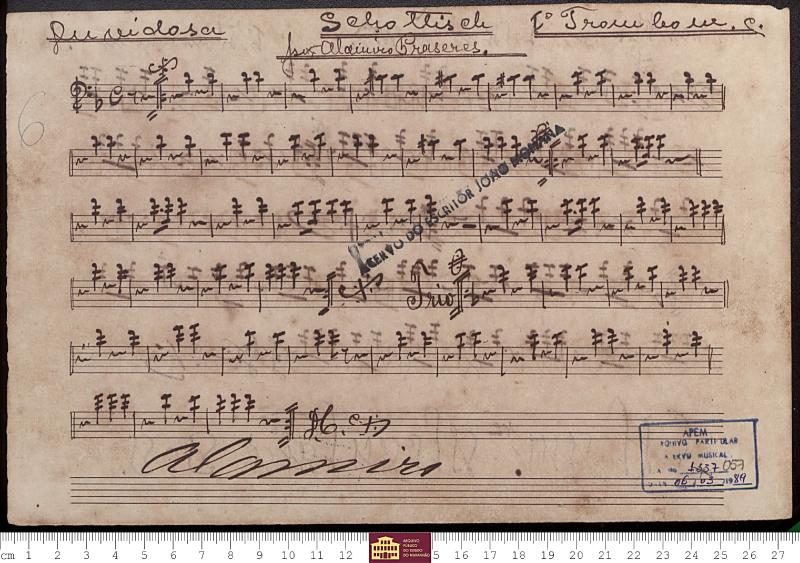 Duvidosa Schottisch 1º Trombone. C.
por Alaimiro Praseres.
6
ACERVO DO ESCRITOR JOÃO MOHANA
Trio
Alcimiro
APEM
ARQUIVO PARTICULAR
ACERVO MUSICAL
1337 057
06 / 03 / 1989
cm 1 2 3 4 5 6 7 8 9 10 11 12 13 15 16 17 18 19 20 21 22 23 24 25 26 27
ARQUIVO PÚBLICO DO ESTADO DO MARANHÃO